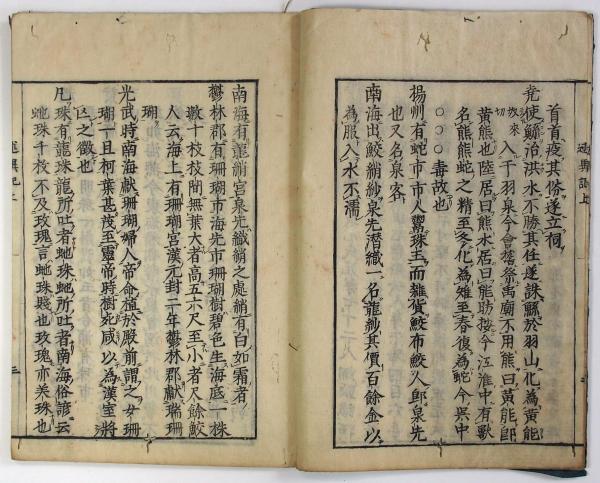 首首疫其俗遂立祠
堯使鯀治洪水不勝其任遂誅鯀於羽山化為黄能
入于羽泉今會稽祭禹廟不用熊曰黄能即
黄熊也陸居曰熊水居曰能昉按今江淮中有獸
名熊熊蛇之精至冬化為雉至春復為蛇今呉中
不食雉毒故也
揚州有蛇市市人鬻珠玉而雜貨鮫布鮫人即泉先
也又名泉客
南海出鮫綃紗泉先潜織一名龍紗其價百餘金以
為服入水不濡
述異記上
南海有龍綃宮泉先織綃之處綃有白如霜者
欝林郡有珊瑚市海先市珊瑚樹碧色生海底一株
數十枝枝間無葉大者高五六尺至小者尺餘鮫
人云海上有珊瑚宮漢元封二年欝林郡献瑞珊
瑚
光武時南海献珊瑚婦人帝命植於殿前謂之女珊
瑚一旦柯葉甚茂至靈帝時樹死咸以為漢室將
亡之徴也
凡珠有龍珠龍所吐者虵珠虵所吐者南海俗諺云
虵珠千枚不及玫瑰言虵珠賤也玫瑰亦美珠也